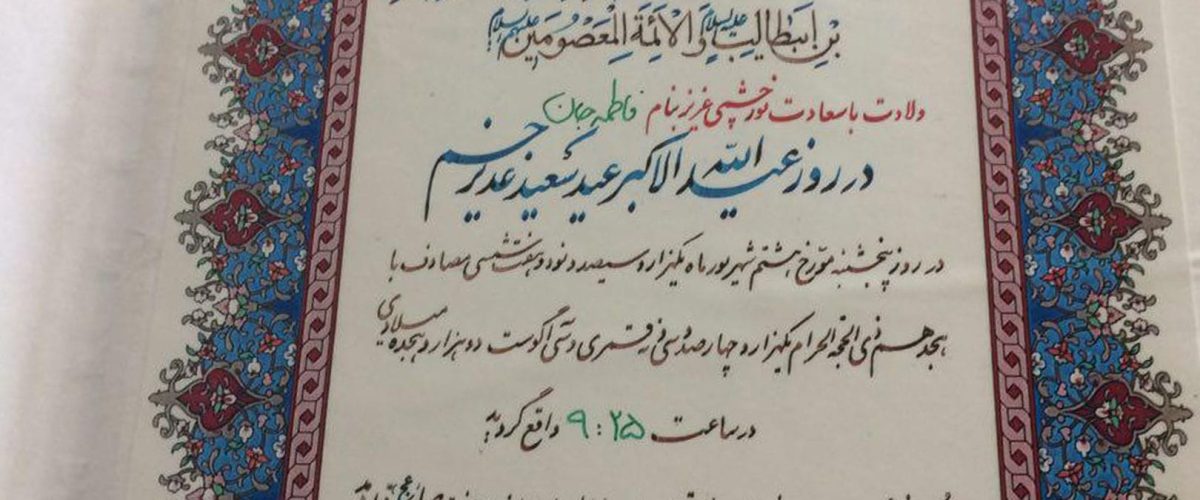 بن ابیطالب علیه السلام و الائمة المعصومین علیهم السلام
ولادت با سعادت نورچشمی عزیز بنام فاطمه جان
در روز عید الله الاکبر عید سعید غدیر خم
در روز پنجشنبه مورخ هشتم شهریور ماه یکهزار و سیصد و نود و هفت شمسی مصادف با
هجدهم ذی الحجه الحرام یکهزار و چهارصد و سی و نه قمری و سی آگوست دو هزار و هجده میلادی
در ساعت ۹:۲۵ واقع گردید